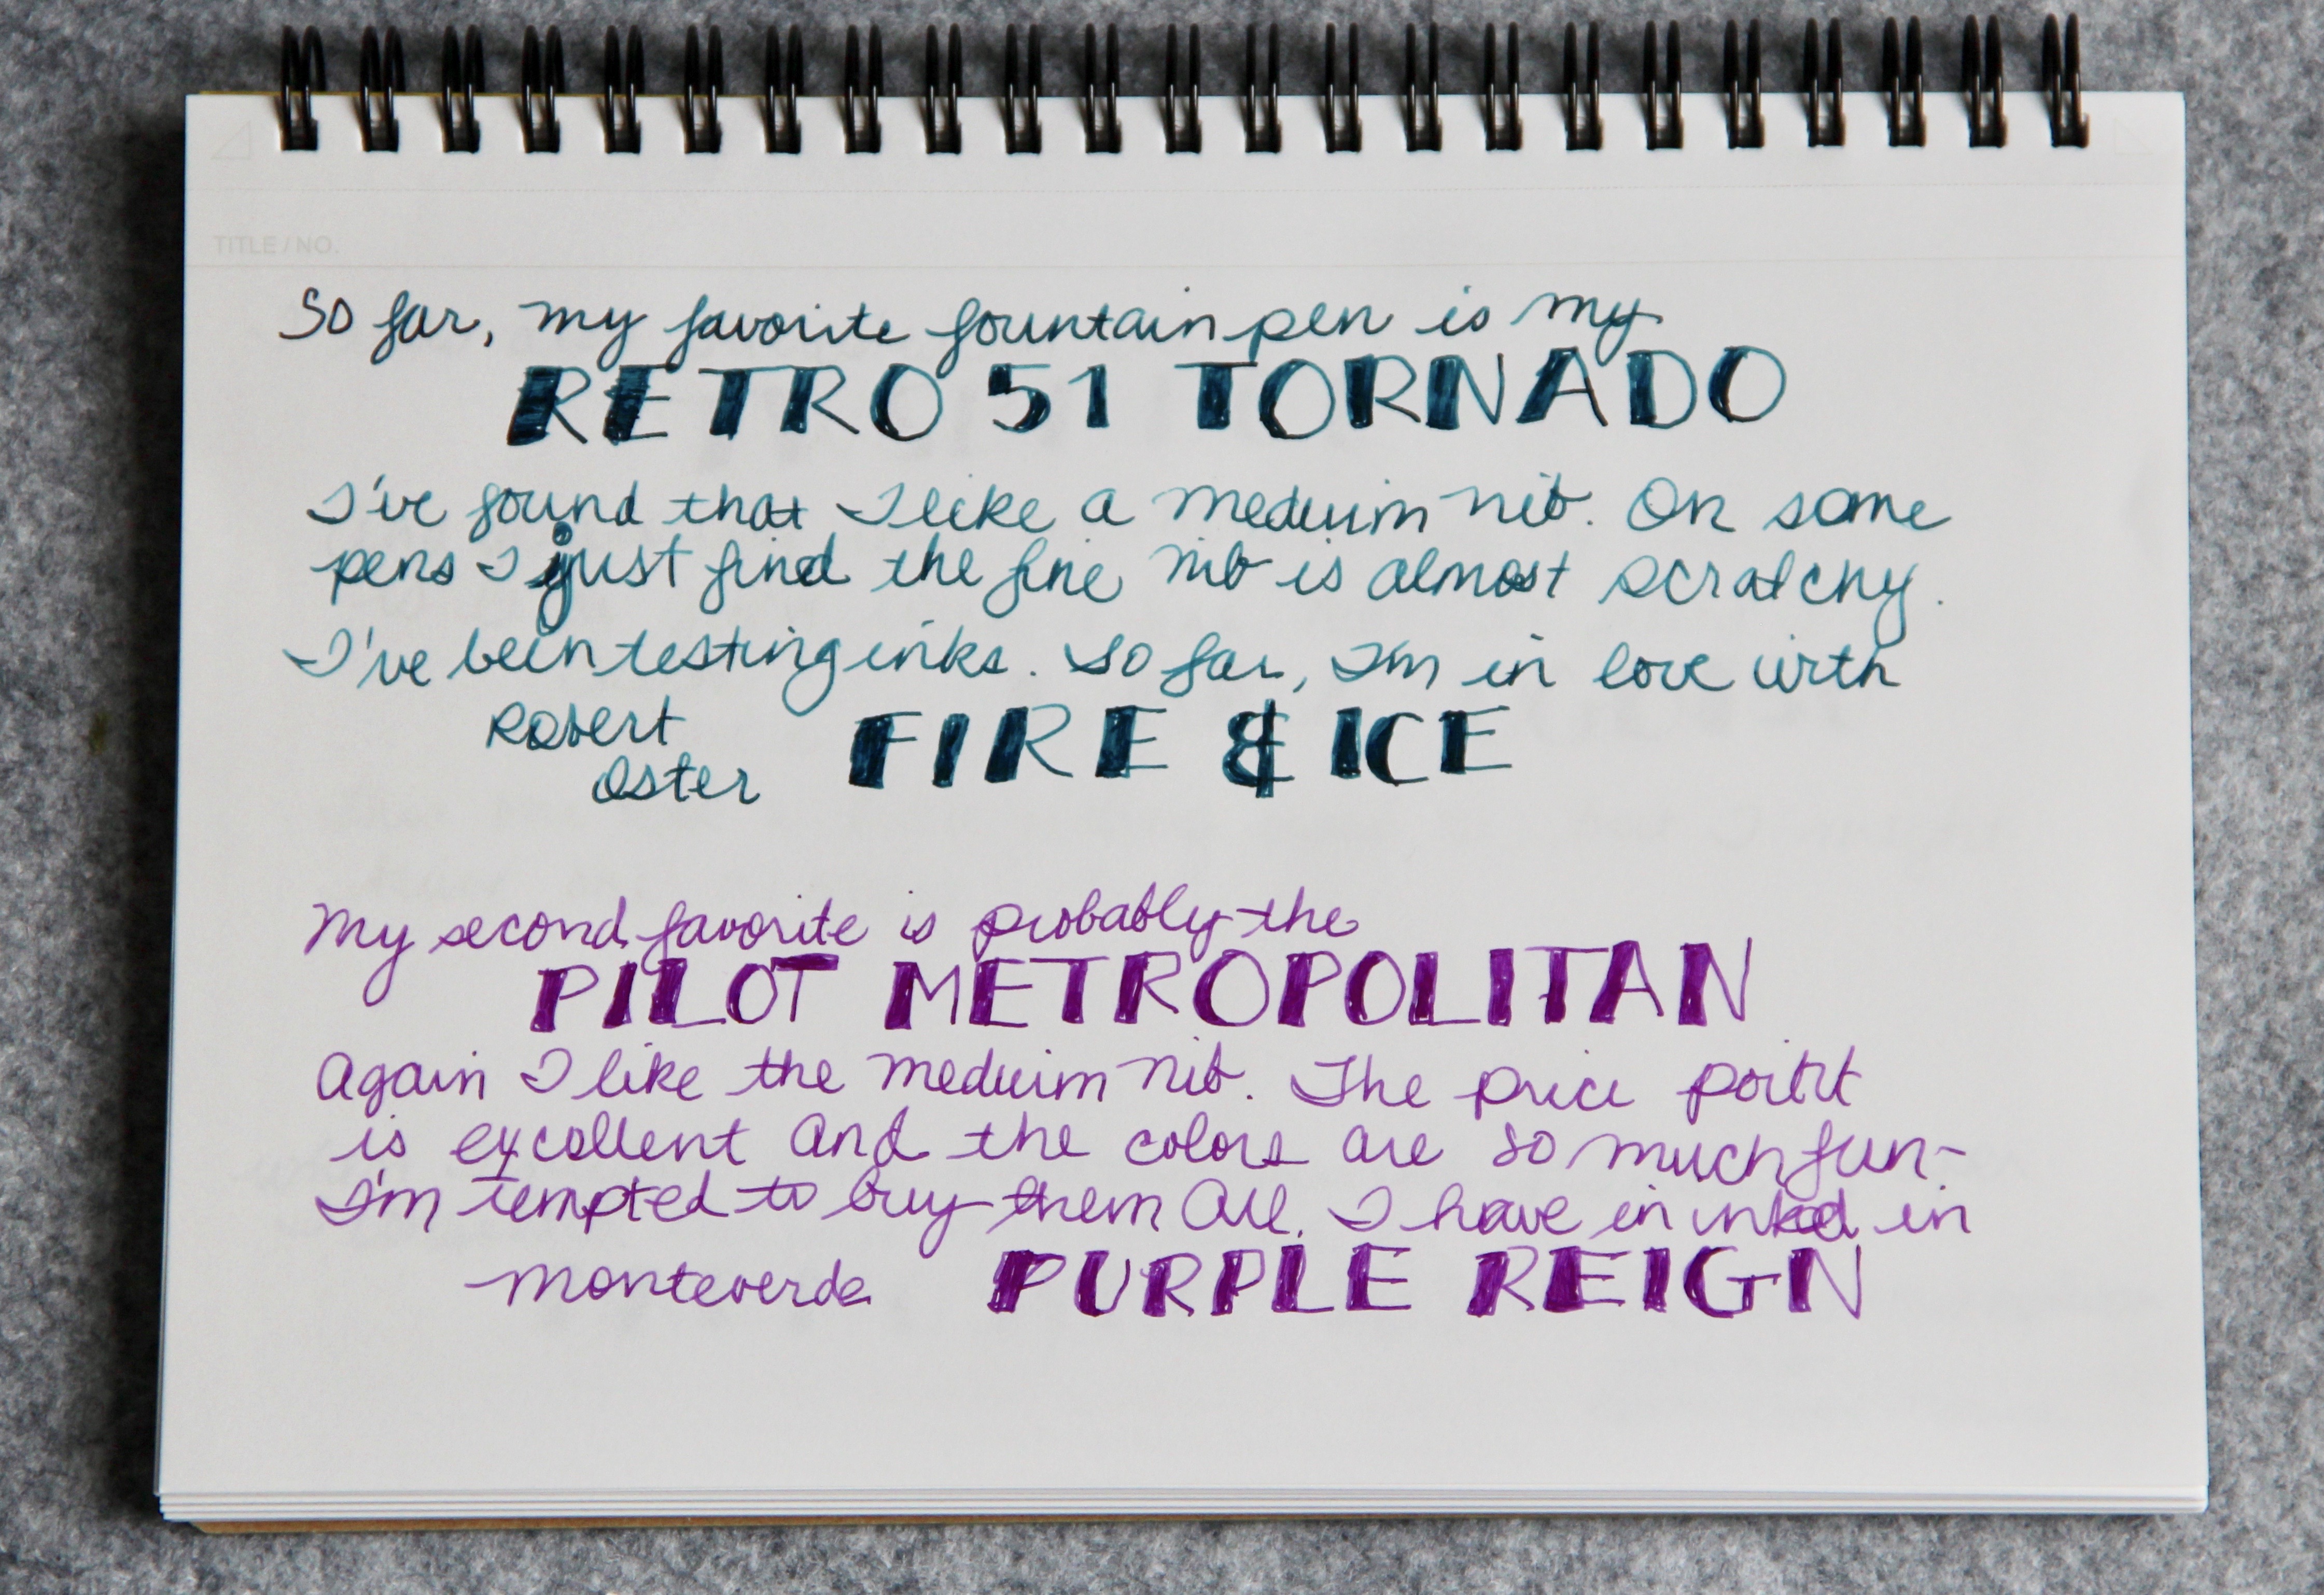 TITLE / NO.
So far, my favorite fountain pen is my
RETRO 51 TORNADO
I've found that I like a meduim nib. On some
pens I just find the fine nib is almost scratchy.
I've been testing inks. So far, I'm in love with
Robert
Oster FIRE & ICE
My second favorite is probably the
PILOT METROPOLITAN
Again I like the meduim nib. The price point
is excellent and the colors are so much fun-
I'm tempted to buy them all. I have in inked in
Monteverde PURPLE REIGN